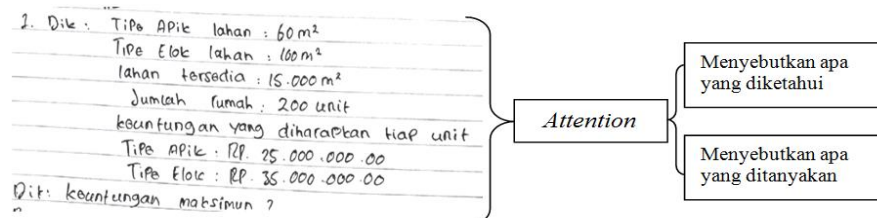 1. Dik : Tipe Apik lahan : 60 m²
Tipe Elok lahan : 100 m²
lahan tersedia : 15.000 m²
Jumlah rumah : 200 unit
keuntungan yang diharapkan tiap unit
Tipe Apik : Rp. 25.000.000.00
Tipe Elok : Rp. 35.000.000.00
Dit : keuntungan maksimun ?
Attention
Menyebutkan apa
yang diketahui
Menyebutkan apa
yang ditanyakan